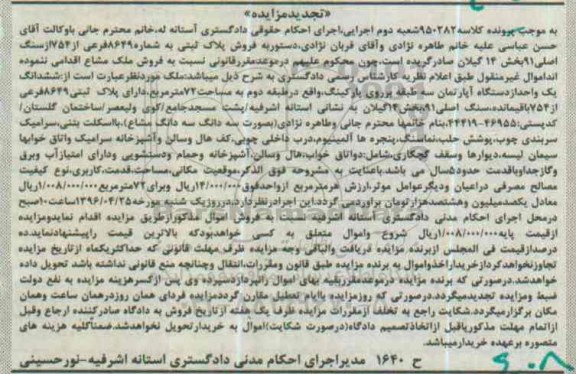 «تجدیدمزایده»
به موجب پرونده کلاسه۹۵۰۲۸۲شعبه دوم اجرایی،اجرای احکام حقوقی دادگستری آستانه له،خانم محترم جانی باوکالت آقای
حسن عباسی علیه خانم طاهره نژادی وآقای قربان نژادی،دستوربه فروش پلاک ثبتی به شماره۸۶۴۹فرعی از۷۵۴ازسنگ
اصلی۹۱بخش ۱۴ گیلان صادرگردیده است.چون محکوم علیهم درموعدمقررقانونی نسبت به فروش ملک مشاع اقدامی ننموده
اند اموال غیرمنقول طبق اعلام نظریه کارشناس رسمی دادگستری به شرح ذیل میباشد:ملک موردنظرعبارت است از:ششدانگ
یک واحددستگاه آپارتمان سه طبقه برروی پارکینگ،واقع درطبقه دوم به مساحت۷۲مترمربع،دارای پلاک ثبتی۸۶۴۹فرعی
از۷۵۴باقیمانده،سنگ اصلی۹۱،بخش۱۴گیلان به نشانی آستانه اشرفیه/پشت مسجدجامع/کوی ولیعصر/ساختمان گلستان/
کدپستی:۴۶۹۵۵-۴۴۴۱۹،بنام خانمها محترم جانی وطاهره نژادی(بصورت سه دانگ سه دانگ مشاع)،بااسکلت بتنی،سرامیک
سربندی چوب،پوشش حلب،نماسنگ،پنجره ها آلمینیوم،درب داخلی چوبی،کف هال وسالن وآشپزخانه سرامیک واتاق خوابها
سیمان لیسه،دیوارها وسقف گچکاری،شامل:دواتاق خواب،هال وسالن،آشپزخانه وحمام ودستشویی ودارای امتیازآب وبرق
وگازجداوباقدمت حدود۵سال می باشد.باعنایت به مشروحه فوق الذکر،موقعیت مکانی،مساحت،قدمت،کاربری،نوع کیفیت
مصالح مصرفی دراعیان ودیگرعوامل موثر،ارزش هرمترمربع ازواحدفوق۱۴/۰۰۰/۰۰۰ریال وبرای۷۲مترمربع۱/۰۰۸/۰۰۰/۰۰۰ریال
معادل یکصدمیلیون وهشتصدهزارتومان برآوردمی گردد.این اجرادرنظردارد،درروزیک شنبه مورخه۱۳۹۶/۰۴/۲۵ساعت۱۰صبح
درمحل اجرای احکام مدنی دادگستری آستانه اشرفیه،نسبت به فروش اموال مذکورازطریق مزایده اقدام نمایدومزایده
ازقیمت پایه۱/۰۰۸/۰۰۰/۰۰۰ریال شروع واموال متعلق به کسی خواهدبودکه بالاترین قیمت راپیشنهادنماید.ده
درصدازقیمت فی المجلس ازبرنده مزایده دریافت والباقی وجه مزایده ظرف مهلت قانونی که حداکثریکماه ازتاریخ مزایده
تجاوزنخواهدکردازخریداراخذواموال به برنده مزایده طبق قانون ومقررات،انتقال وچنانچه منع قانونی نداشته باشد تحویل داده
خواهدشد.درصورتی که برنده مزایده درموعدمقرربقیه بهای اموال راپردازدسپرده وی پس ازکسرهزینه مزایده به نفع دولت
ضبط ومزایده تجدیدمیگردد.درصورتی که روزمزایده باایام تعطیل مقارن گرددمزایده فردای همان روزدرهمان ساعت وهمان
مکان برگزارمیگردد.شکایت راجع به تخلف ازمقررات مزایده ظرف یک هفته ازتاریخ فروش به دادگاه صادرکننده ارجاع وقبل
ازاتمام مهلت مذکوریاقبل ازاتخاذتصمیم دادگاه(درصورت شکایت)اموال به خریدارتحویل نخواهدشد.ضمناًکلیه هزینه های
متصوره برعهده خریدارمیباشد.
ح ۱۶۴۰ مدیراجرای احکام مدنی دادگستری آستانه اشرفیه-نورحسینی
۶۰۸